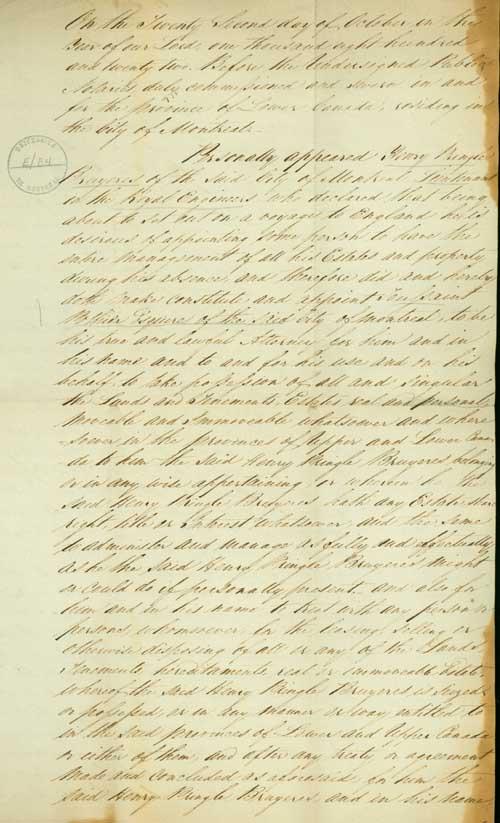 On the Twenty Second day of October in the
Year of our Lord, one thousand eight hundred
and twenty two. Before the Undersigned Public
Notaries, duly commissioned and sworn in and
for the province of Lower Canada, residing in
the City of Montreal.
Personally appeared Henry Pringle
Bruyeres of the Said City of Montreal Lieutenant
in the Royal Engineers who declared that being
about to set out on a voyage to England he is
desirous of appointing some person to have the
entire management of all his Estates and property
during his absence, and therefore did and hereby
doth make constitute and appoint Toussaint
Pothier Esquire of the Said City of Montreal, to be
his true and lawful Attorney for him and in
his name and to and for his use and on his
behalf, to take possession of all and singular
the Lands and Tenements, Estates real and personal
moveable and Immoveable whatsoever and where
-soever in the provinces of Upper and Lower Cana
da to him the Said Henry Pringle Bruyeres belonging
or in any wise appertaining or wherein he the
Said Henry Pringle Bruyeres hath any Estate share
right, title or Interest whatsoever, and the same
to administer and manage as fully and effectually
as he the Said Henry Pringle Bruyeres might
or could do if personally present, and also for
him and in his name to treat with any person or
persons whomsoever for the leasing, selling or
otherwise disposing of all or any of the Lands
Tenements, hereditaments, real or immoveable Estate
whereof the Said Henry Pringle Bruyeres is Seized
or possessed, or in any manner or way entitled to
in the Said provinces of Lower and Upper Canada
or either of them, and after any treaty or agreement
made and concluded as aforesaid, for him the
Said Henry Pringle Bruyeres and in his name